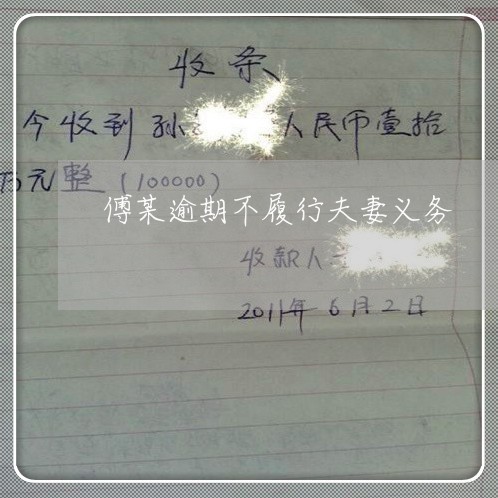 收条
今收到孙 人民币壹拾
万元整（100000）
傅某逾期不履行夫妻义务
收款人
2011年6月2日